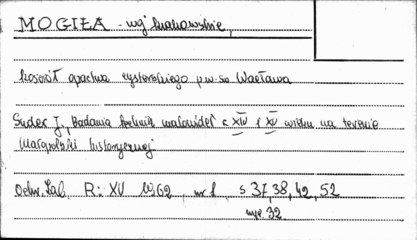 MOGIŁA - woj. krakowskie,
Kościół opactwa cysterskiego p.w. św. Wacława
Suder J, Badania techniki malowideł z XIV i XV wieku na terenie
Małopolski historycznej
Ochr. Zab. R: XV 1962, nr 1, s 37, 38, 42, 52
ryc. 32